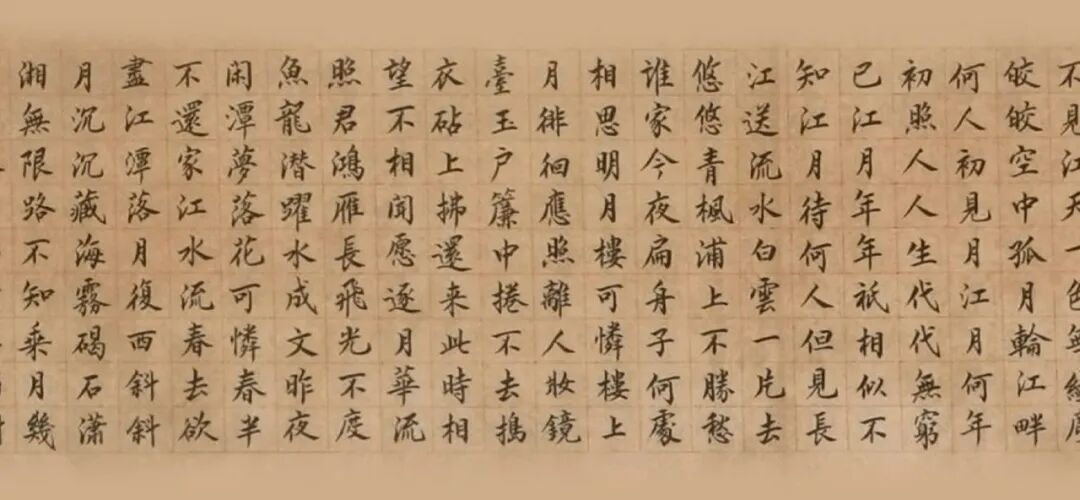 不見江天一色無
皎皎空中孤月輪江畔
何人初見月江月何年
初照人人生代代無窮
已江月年年祇相似不
知江月待何人但見長
江送流水白雲一片去
悠悠青楓浦上不勝愁
誰家今夜扁舟子何處
相思明月樓可憐樓上
月徘徊應照離人妝鏡
臺玉户簾中捲不去搗
衣砧上拂還来此時相
望不相聞愿逐月華流
照君鴻雁長飛光不度
魚龍潜躍水成文昨夜
闲潭夢落花可憐春半
不還家江水流春去欲
盡江潭落月復西斜斜
月沉沉藏海霧碣石瀟
湘無限路不知乘月幾